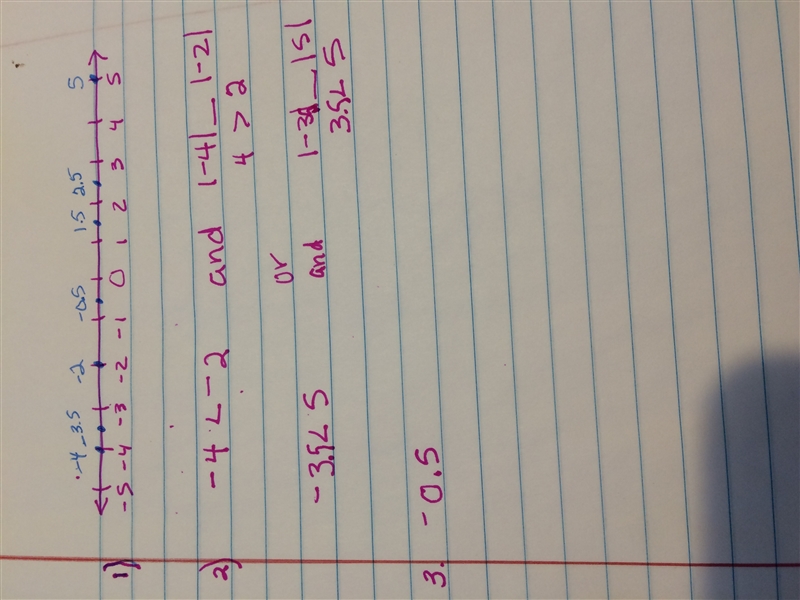 -4 -3.5 -2 -0.5 1.5 2.5 5
1) -5 -4 -3 -2 -1 0 1 2 3 4 5
2) -4 < -2 and |-4| _ |-2|
4 > 2
or
-3.5 < 5 and |-3.5| _ |5|
3.5 < 5
3. -0.5